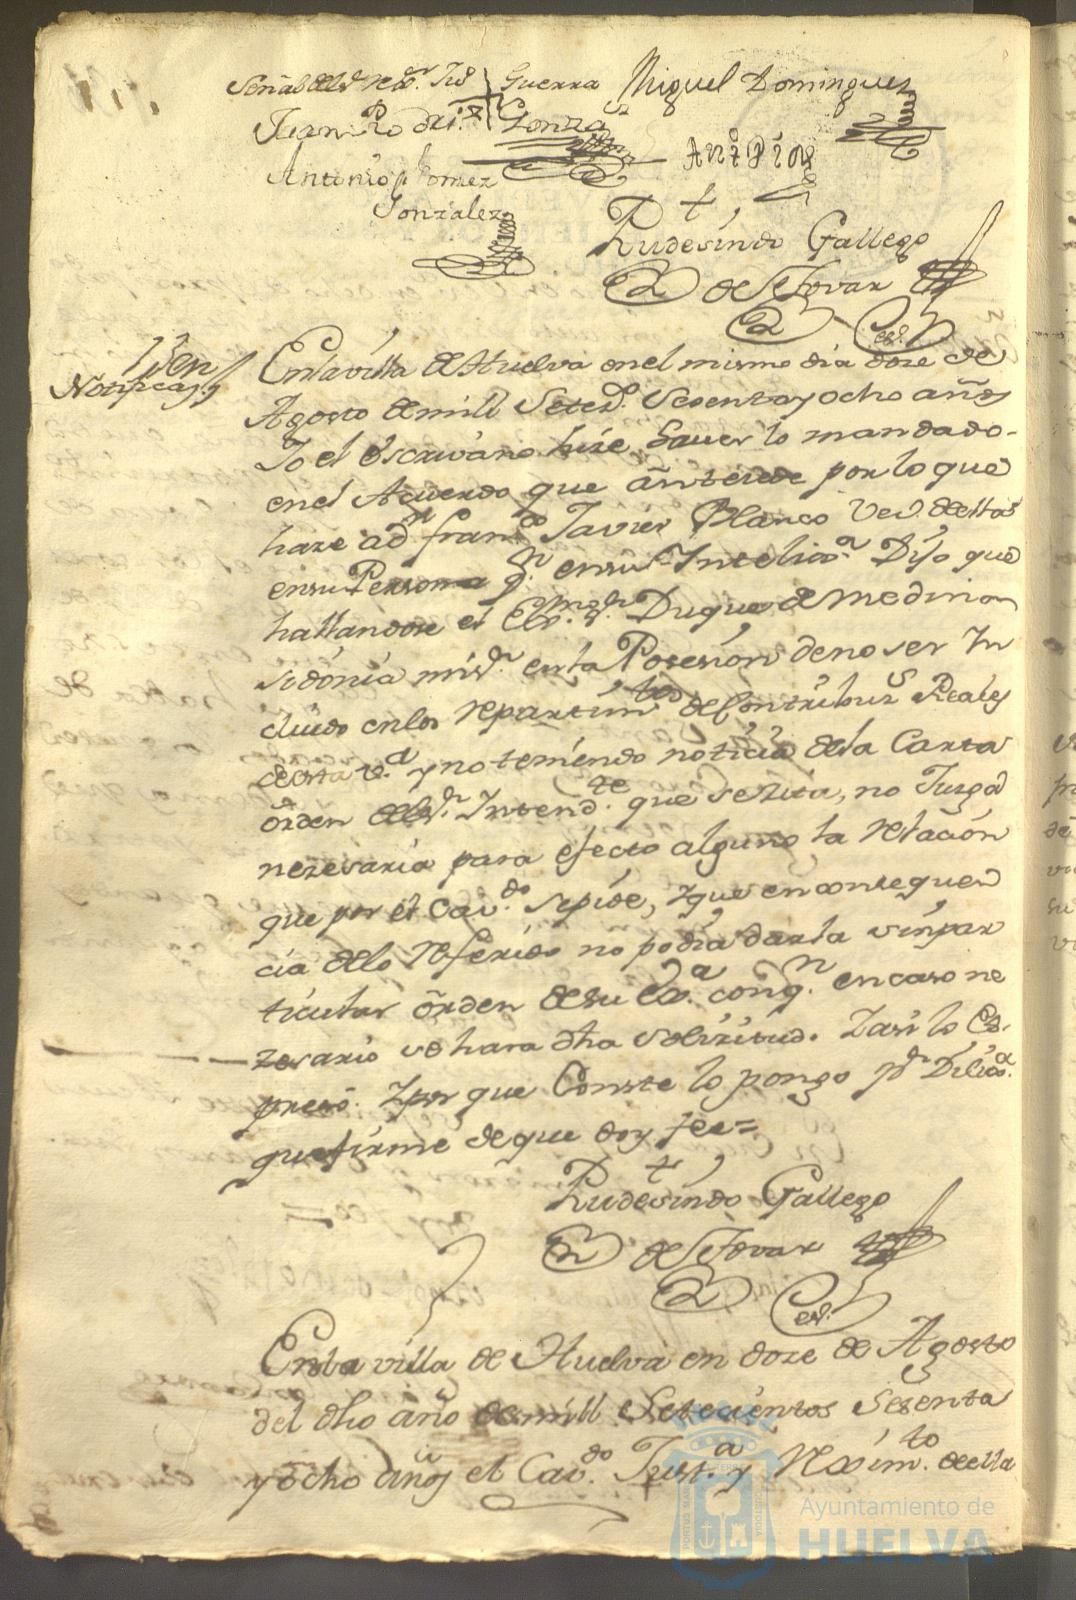 Señal del Sr. Rexr. Jud + Guerra Miguel Dominguez
Juan Rodrz. Gonzz.
Antonio Gomez
Gonzalez
Ante mi
Rudesindo Gallego
de Tovar
Esno.
Iden
Notificazn.
En la villa de Huelva en el mismo dia doze de
Agosto de mill Setezs. Sesenta y ocho años
Yo el escrivano hize Saver lo mandado
en el Acuerdo que antezede por lo que
haze a Dn. Franco. Javier Blanco Vezo. de ella
en su Persona qn. en su Inteliga. Dijo que
hallandose el Exmo. Sr. Duque de Medina
Sidonia mi Sr. en la Posesion de no ser In
cluido en los repartimtos. de Contribus. Reales
de esta va. y no teniendo noticia de la Carta
orden del Sr. Intendte. que se zita, no Juzga
nezesaria para efecto alguno la relacion
que por el Cavdo. se pide, y que en consequen
cia de lo referido no podia darla sin par
ticular orden de su Exa. con qn. en caso ne
zesario se hara dha solizitud. Y asi lo Es-
presó. Y por que Conste lo pongo pr. Diliga.
que firmé de que doy fee=
Rudesindo Gallego
de Tovar
Esno.
En la villa de Huelva en doze de Agosto
del dho año de mill Setecientos Sesenta
y ocho años el Cavdo. Justa. y Reximto. de ella
Ayuntamiento de
HUELVA